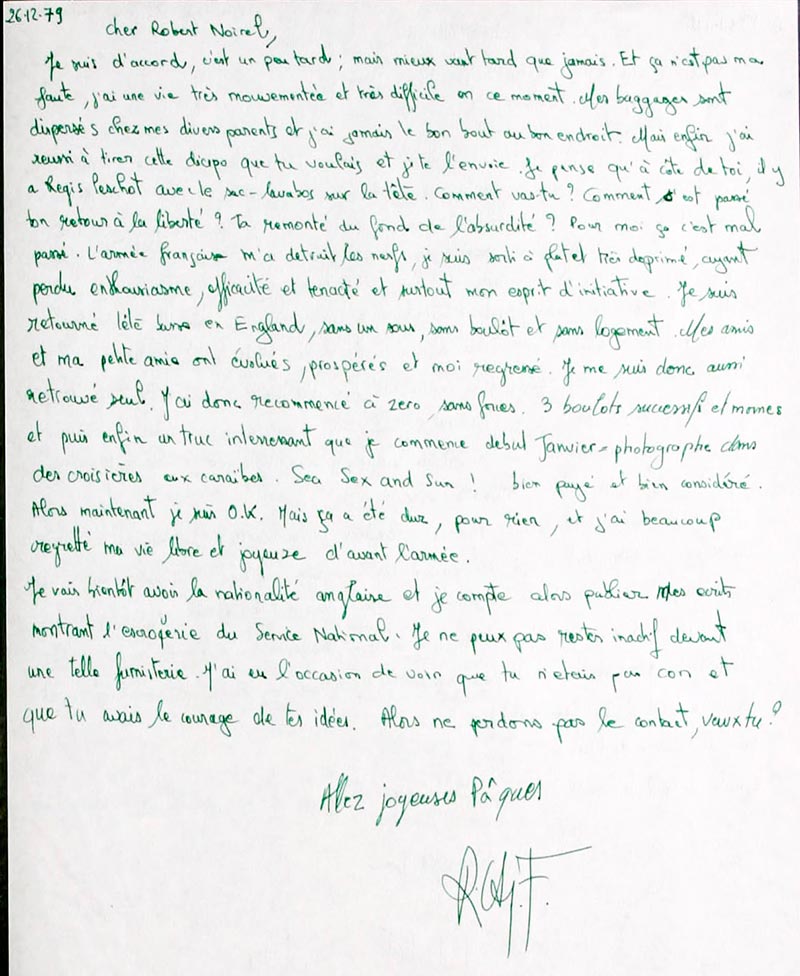 26.12.79
cher Robert Noirel,
Je suis d'accord, c'est un peu tard ; mais mieux vaut tard que jamais. Et ça n'est pas ma
faute, j'ai une vie très mouvementée et très difficile en ce moment. Mes baggages sont
dispersés chez mes divers parents et j'ai jamais le bon bout au bon endroit. Mais enfin j'ai
reussi à tirer cette diapo que tu voulais et je te l'envoie. Je pense qu'à côte de toi, il y
a Regis Peschot avec le sac-lavabos sur la tête. Comment vas-tu ? Comment s'est passé
ton retour à la liberté ? Ta remonté du fond de l'absurdité ? Pour moi ça c'est mal
passé. L'armée française m'a detruit les nerfs, je suis sorti à plat et très deprimé, ayant
perdu enthousiasme, efficacité et tenacté et surtout mon esprit d'initiative. Je suis
retourné l'été en England, sans un sous, sans boulôt et sans logement. Mes amis
et ma petite amie ont évolués, prospérés et moi regressé. Je me suis donc aussi
retrouvé seul. J'ai donc recommencé à zero, sans forces. 3 boulots successifs et mornes
et puis enfin un truc interressant que je commence debut Janvier = photographe dans
des croisières aux caraïbes. Sea Sex and Sun ! bien payé et bien considéré.
Alors maintenant je suis O.K. Mais ça a été dur, pour rien, et j'ai beaucoup
regretté ma vie libre et joyeuze d'avant l'armée.
Je vais bientôt avoir la nationalité anglaise et je compte alors publier mes ecrits
montrant l'escrogerie du Service National. Je ne peux pas rester inactif devant
une telle fumisterie. J'ai eu l'occasion de voir que tu n'etais pas con et
que tu avais le courage de tes idées. Alors ne perdons pas le contact, veux tu ?
Allez joyeuses Pâques